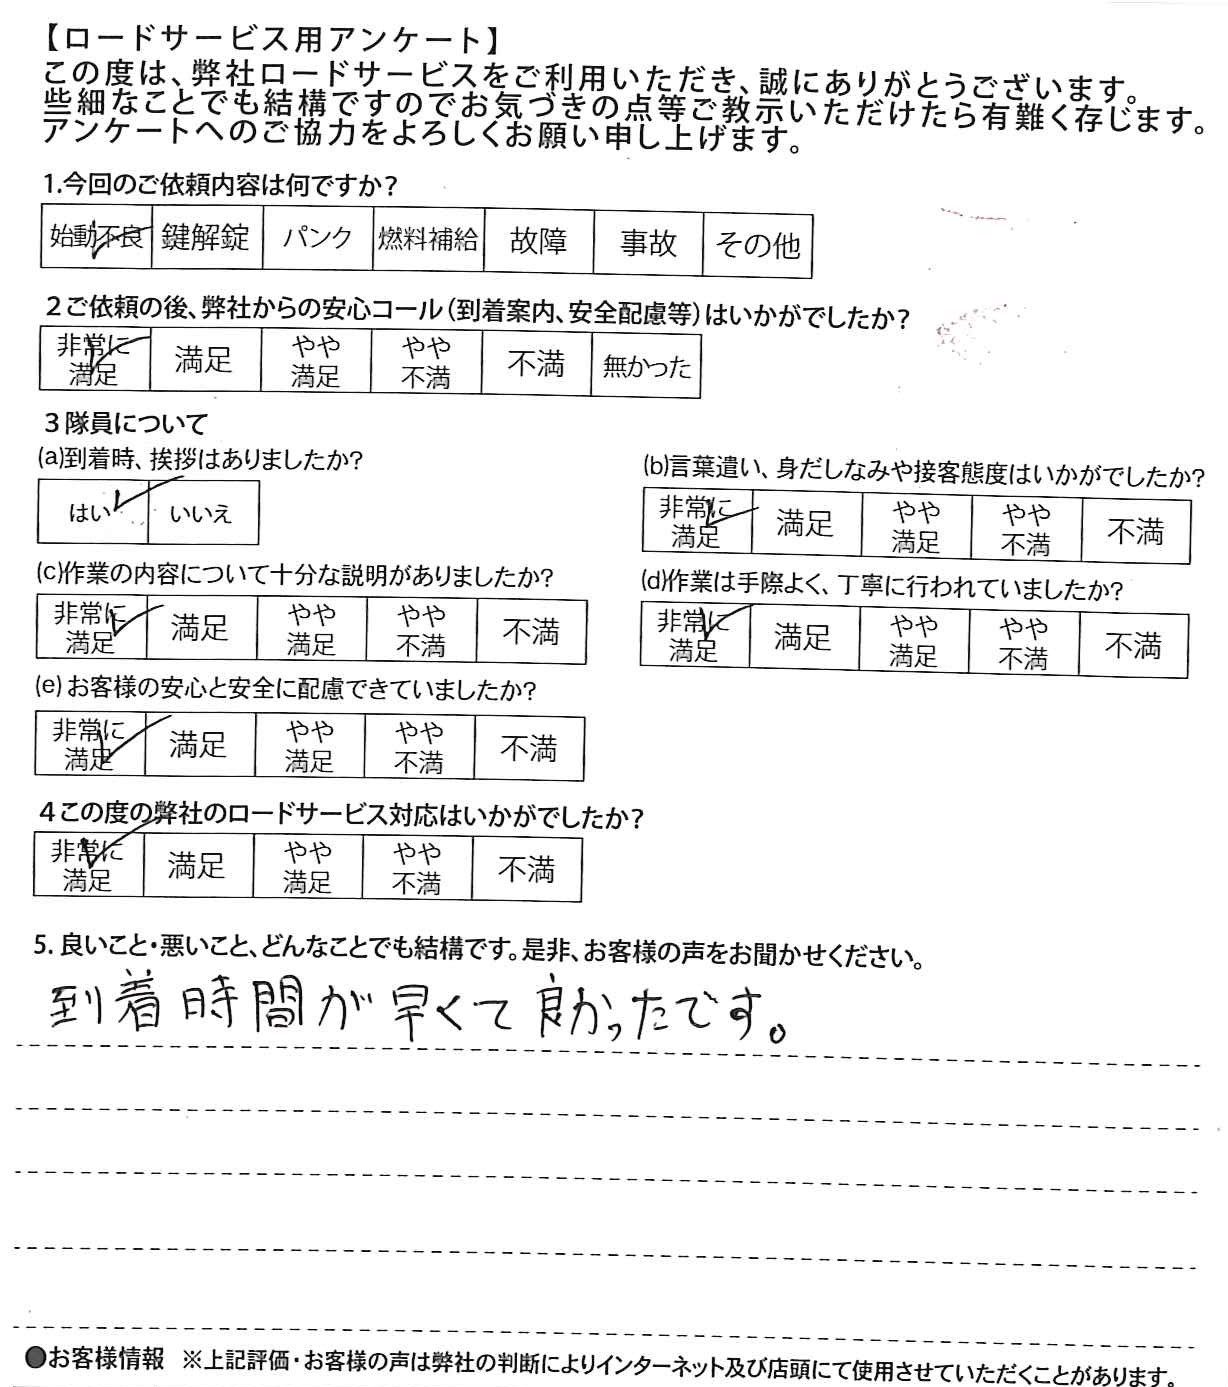 【ロードサービス用アンケート】
この度は、弊社ロードサービスをご利用いただき、誠にありがとうございます。
些細なことでも結構ですのでお気づきの点等ご教示いただけたら有難く存じます。
アンケートへのご協力をよろしくお願い申し上げます。
1.今回のご依頼内容は何ですか?
始動不良 鍵解錠 パンク 燃料補給 故障 事故 その他
2ご依頼の後、弊社からの安心コール(到着案内、安全配慮等)はいかがでしたか?
非常に満足 満足 やや満足 やや不満 不満 無かった
3隊員について
(a)到着時、挨拶はありましたか?
はい いいえ
(b)言葉遣い、身だしなみや接客態度はいかがでしたか?
非常に満足 満足 やや満足 やや不満 不満
(c)作業の内容について十分な説明がありましたか?
非常に満足 満足 やや満足 やや不満 不満
(d)作業は手際よく、丁寧に行われていましたか?
非常に満足 満足 やや満足 やや不満 不満
(e)お客様の安心と安全に配慮できていましたか?
非常に満足 満足 やや満足 やや不満 不満
4この度の弊社のロードサービス対応はいかがでしたか?
非常に満足 満足 やや満足 やや不満 不満
5. 良いこと・悪いこと、どんなことでも結構です。是非、お客様の声をお聞かせください。
到着時間が早くて良かったです。
●お客様情報 ※上記評価・お客様の声は弊社の判断によりインターネット及び店頭にて使用させていただくことがあります。